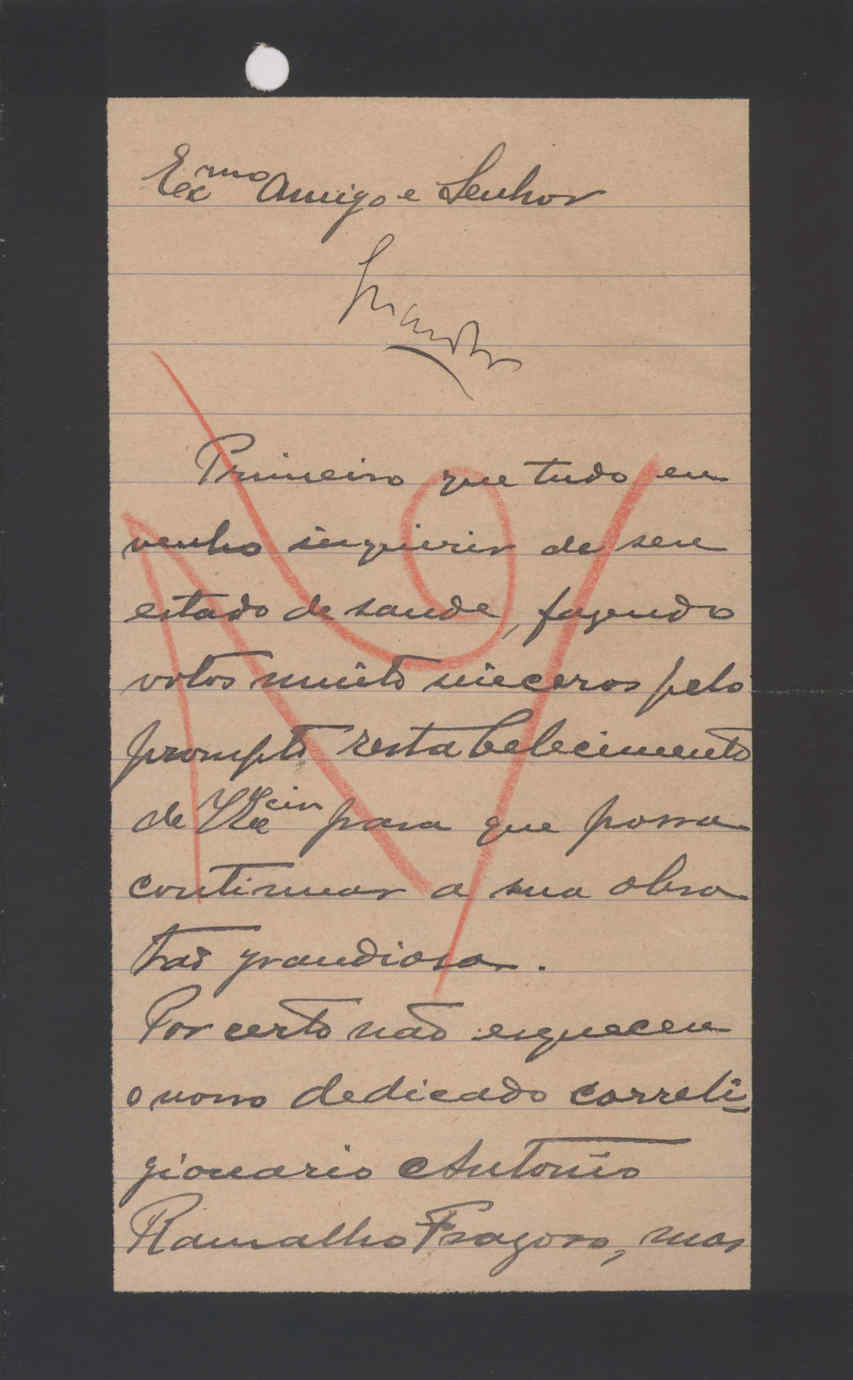 Exmo Amigo e Senhor
Primeiro que tudo eu
venho inquirir de seu
estado de saude, fazendo
votos muito sinceros pelo
prompto restabelecimento
de VExcia para que possa
continuar a sua obra
tão grandiosa.
Por certo não esqueceu
o nosso dedicado correli-
gionario Antonio
Ramalho Fragoso, mas